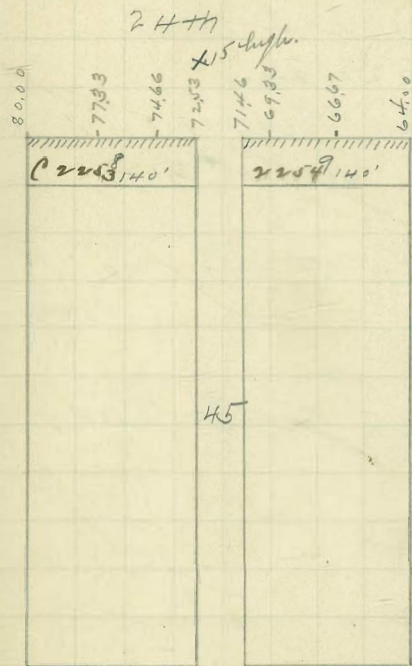 24th
x 15 high.
80.00 77.33 74.66 72.53 71.46 69.33 66.67 64.00
C 2253 8 140' 2254 9 140'
45